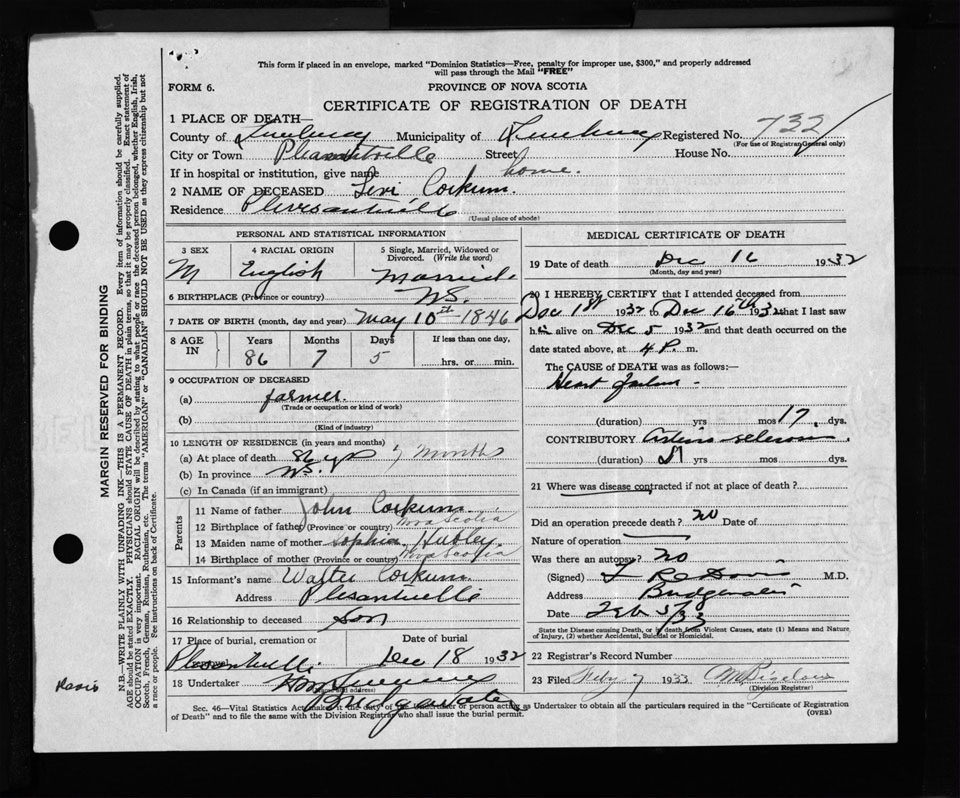 This form if placed in an envelope, marked "Dominion Statistics—Free, penalty for improper use, $300," and properly addressed
will pass through the Mail "FREE"
FORM 6.
PROVINCE OF NOVA SCOTIA
CERTIFICATE OF REGISTRATION OF DEATH
MARGIN RESERVED FOR BINDING
N.B.—WRITE PLAINLY WITH UNFADING INK—THIS IS A PERMANENT RECORD. Every item of information should be carefully supplied.
AGE should be stated EXACTLY. PHYSICIANS should STATE CAUSE OF DEATH in plain terms, so that it may be properly classified. Exact statement of
OCCUPATION is very important. RACIAL ORIGIN will be described by stating to what people or race the deceased person belonged, whether English, Irish,
Scotch, French, German, Russian, Ruthenian, etc. The terms "AMERICAN" or "CANADIAN" SHOULD NOT BE USED as they express citizenship but not
a race or people. See instructions on back of Certificate.
1 PLACE OF DEATH—
County of Lunenburg Municipality of Lunenburg Registered No. 732
(For use of Registrar General only)
City or Town Pleasantville Street House No.
If in hospital or institution, give name home.
2 NAME OF DECEASED Levi Corkum.
Residence Pleresantville
(Usual place of abode)
PERSONAL AND STATISTICAL INFORMATION
3 SEX 4 RACIAL ORIGIN 5 Single, Married, Widowed or Divorced. (Write the word)
M English Married
6 BIRTHPLACE (Province or country) N.S.
7 DATE OF BIRTH (month, day and year) May 10th 1846
8 AGE IN Years Months Days If less than one day,
86 7 5 hrs. or min.
9 OCCUPATION OF DECEASED
(a) farmer.
(Trade or occupation or kind of work)
(b)
(Kind of industry)
10 LENGTH OF RESIDENCE (in years and months)
(a) At place of death 86 yrs 7 Months
(b) In province N.S.
(c) In Canada (if an immigrant)
Parents
11 Name of father John Corkum
12 Birthplace of father (Province or country) Nova Scotia
13 Maiden name of mother Sophia Hubley
14 Birthplace of mother (Province or country) Nova Scotia
15 Informant's name Walter Corkum
Address Plesantville
16 Relationship to deceased Son
17 Place of burial, cremation or Date of burial
Plesantville. Dec 18 1932
18 Undertaker
(Name and address)
Bridgewater
MEDICAL CERTIFICATE OF DEATH
19 Date of death Dec 16 1932
(Month, day and year)
20 I HEREBY CERTIFY that I attended deceased from
Dec 1st 1932 to Dec 16th 1932 that I last saw
him alive on Dec 5 1932 and that death occurred on
date stated above, at 4 P. m.
The CAUSE OF DEATH was as follows:—
Heart failure
(duration) yrs mos 17 dys.
CONTRIBUTORY
(duration) yrs mos dys.
21 Where was disease contracted if not at place of death?
Did an operation precede death? No Date of
Nature of operation
Was there an autopsy? No
(Signed) M.D.
Address Bridgewater
Date Feb 3/33
State the Disease causing Death, or in death from Violent Causes, state (1) Means and Nature
of Injury, (2) whether Accidental, Suicidal or Homicidal.
22 Registrar's Record Number
23 Filed Feby 7 1933 M Bigelow
(Division Registrar)
Davis
Sec. 46—Vital Statistics Act makes it the duty of the undertaker or person acting as Undertaker to obtain all the particulars required in the "Certificate of Registration
of Death" and to file the same with the Division Registrar who shall issue the burial permit.
(OVER)